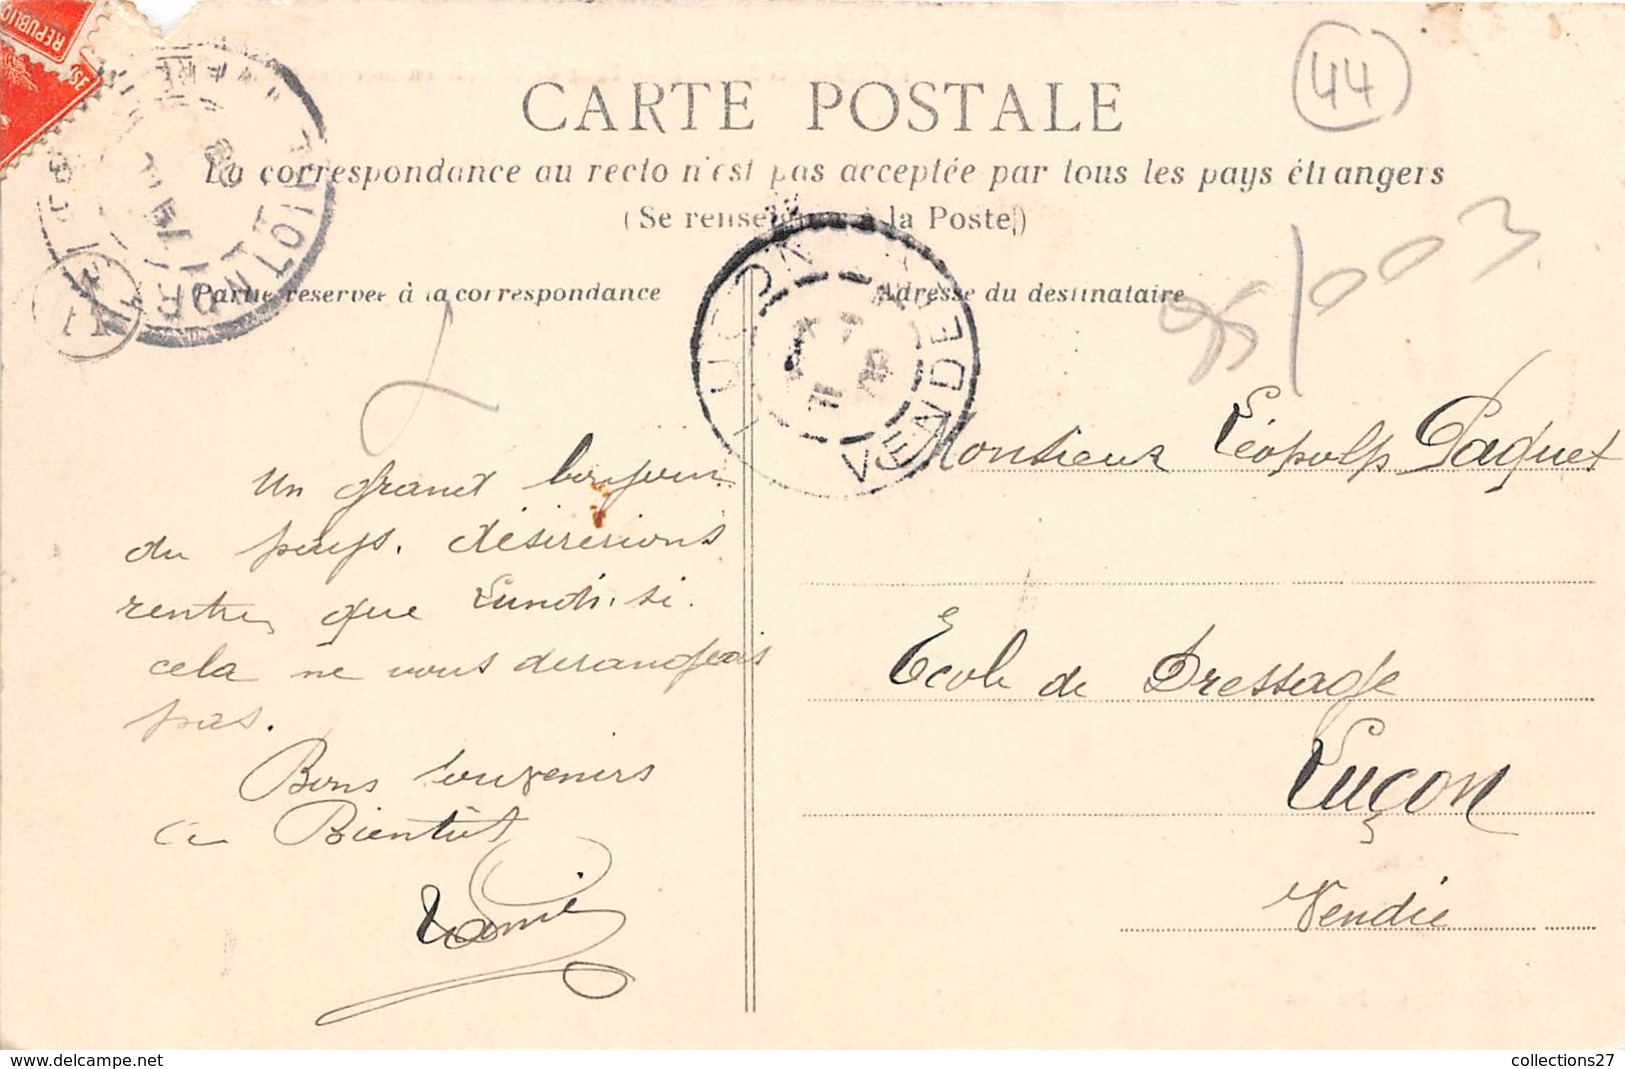 REPUBLIQ
44
CARTE POSTALE
La correspondance au recto n'est pas acceptée par tous les pays étrangers
(Se renseigner à la Poste)
Partie réservée à la correspondance
Adresse du destinataire
LUÇON
VENDEE
95/003
Un grand bonjour
du pays. désirerions
rentre, que Lundi. si
cela ne vous derangeais
pas.
Bons souvenirs
a Bientôt
Monsieur Léopold Paquet
Ecole de Dressage
Luçon
Vendée
collections27